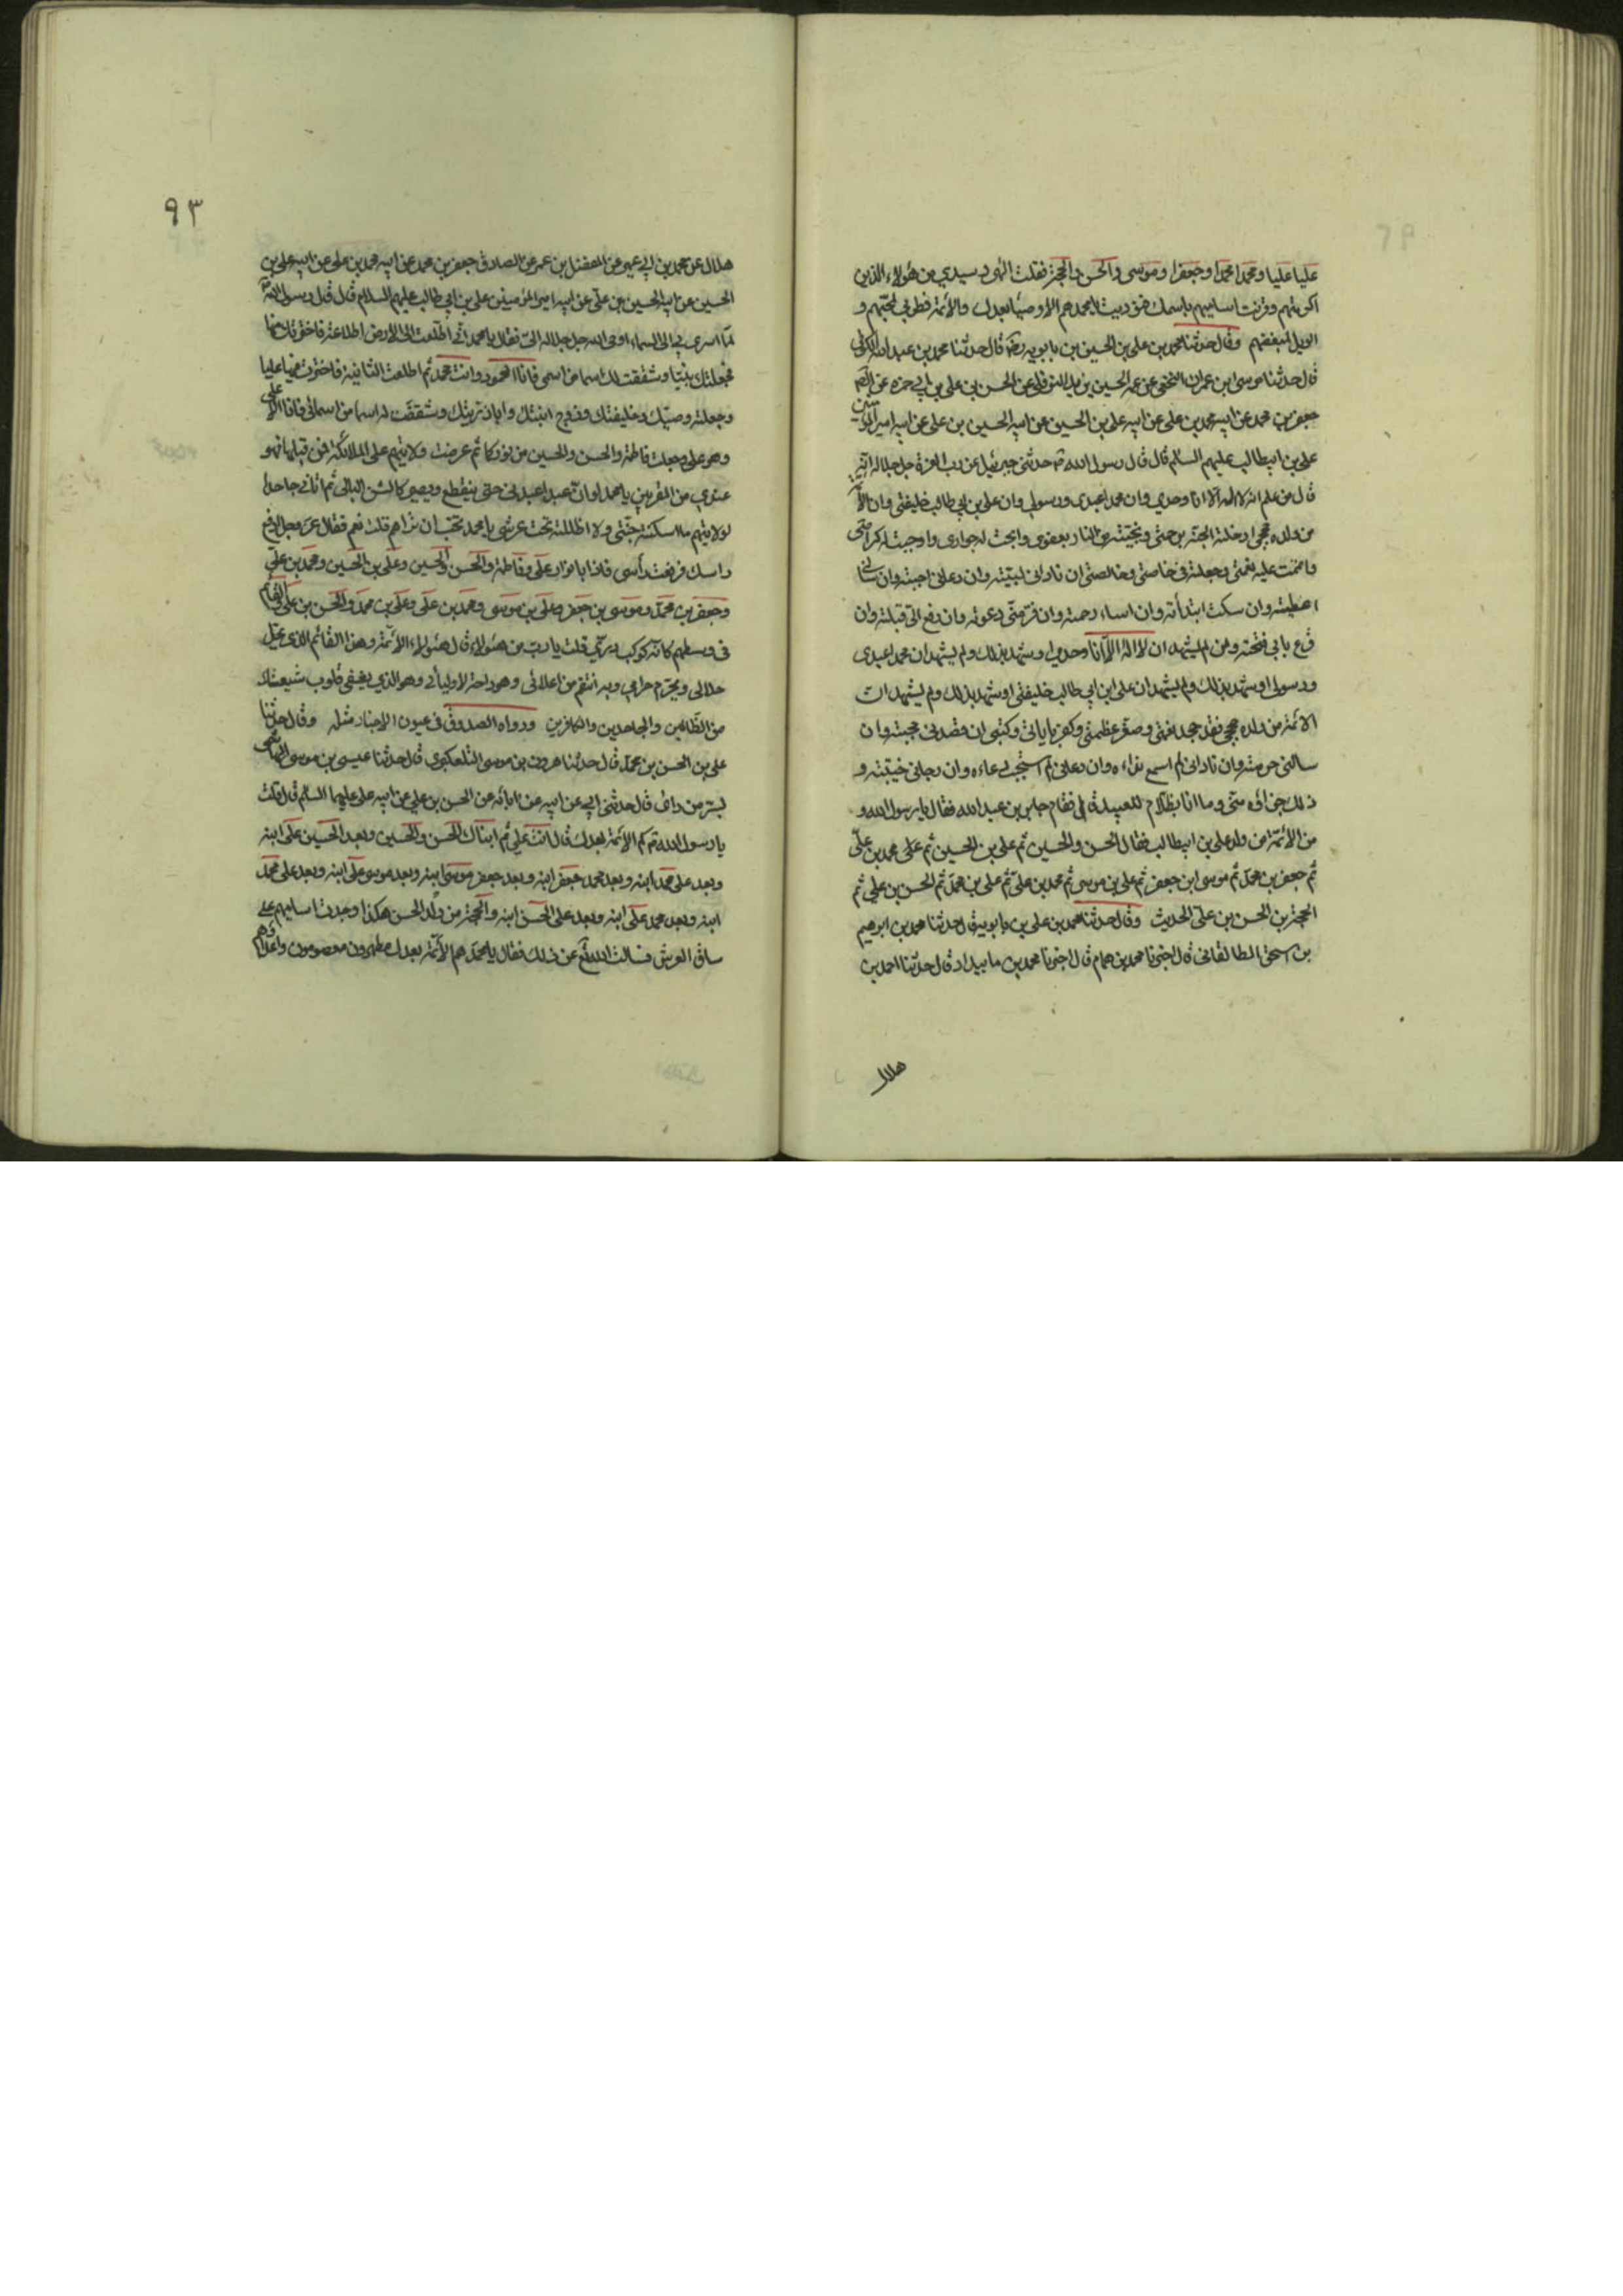 عليا عليا ومحمدا محمدا وجعفرا وموسى والحسن والحجة فقلت الهى وسيدي من هؤلاء الذين
اكرمتهم وقرنت اساميهم باسمك فنوديت يا محمد هم الاوصياء بعدك والائمة فطوبى لمحبيهم و
الويل لمبغضهم وقال حدثنا محمد بن على بن الحسين بن بابويه ره قال حدثنا محمد بن عبد الله الكوفى
قال حدثنا موسى ابن عمران النخعى عن عمه الحسين بن يزيد النوفلى عن الحسن بن على بن ابى حمزه عن
جعفر بن محمد عن ابيه محمد بن على عن ابيه على بن الحسين عن ابيه الحسين بن على عن ابيه امير المؤمنين
على بن ابيطالب عليهم السلام قال قال رسول الله ص حدثنى جبرئيل عن رب العزة جل جلاله انه
قال من علم انه لا اله الا انا وحدي وان محمدا عبدى ورسولى وان على بن ابى طالب خليفتى وان الائمة
من ولده حججى ادخلته الجنة برحمتى ونجيته من النار بعفوى وابحت له جوارى واوجبت له كرامتى
واتممت عليه نعمتى وجعلته فى خاصتى وخالصتى ان نادانى لبيته وان دعانى اجبته وان سالنى
اعطيته وان سكت ابتدأته وان اساء رحمته وان فر منى دعوته وان رجع الى قبلته وان
قرع بابى فتحته ومن لم يشهد ان لا اله الا انا وحدى او شهد بذلك ولم يشهد ان محمدا عبدى
ورسولى او شهد بذلك ولم يشهد ان على ابن ابى طالب خليفتى او شهد بذلك ولم يشهد ان
الائمة من ولده حججى فقد جحد نعمتى وصغر عظمتى وكفر باياتى وكتبى ان قصدنى حجبته وان
سالنى حرمته وان نادانى لم اسمع نداءه وان دعانى لم استجب دعاءه وان رجانى خيبته و
ذلك جزاؤه منى وما انا بظلام للعبيد فقام جابر بن عبد الله فقال يا رسول الله و
من الائمة من ولد على بن ابيطالب فقال الحسن والحسين ثم على بن الحسين ثم محمد بن على
ثم جعفر بن محمد ثم موسى ابن جعفر ثم على بن موسى ثم محمد بن على ثم على بن محمد ثم الحسن بن على ثم
الحجة بن الحسن بن على الحديث وقال حدثنا محمد بن على بن بابويه قال حدثنا محمد بن ابرهيم
بن اسحق الطالقانى قال اخبرنا محمد بن همام قال اخبرنا محمد بن مابيداد قال حدثنا احمد بن
هلال
٩٣
هلال عن محمد بن ابى عمير عن المفضل بن عمر عن الصادق جعفر بن محمد عن ابيه محمد بن على عن ابيه على بن
الحسين عن ابيه الحسين بن على عن ابيه امير المؤمنين على بن ابى طالب عليهم السلام قال قال رسول الله ص
لما اسرى بى الى السماء اوحى الله جل جلاله الى فقال يا محمد انى اطلعت الى الارض اطلاعة فاخترتك منها
فجعلتك نبيا وشققت لك اسما من اسمى فانا المحمود وانت محمد ثم اطلعت الثانية فاخترت منها عليا
وجعلته وصيك وخليفتك وزوج ابنتك وابا ذريتك وشققت له اسما من اسمائى فانا الاعلى
وهو على وجعلت فاطمة والحسن والحسين من نوركما ثم عرضت ولايتهم على الملائكة فمن قبلها فهو
عندي من المقربين يا محمد لو ان عبدا عبدنى حتى ينقطع ويصير كالشن البالى ثم اتانى جاحدا
لولايتهم ما اسكنته جنتى ولا اظللته تحت عرشى يا محمد تحب ان تراهم قلت نعم فقال عز وجل ارفع
راسك فرفعت رأسى فاذا بانوار على وفاطمة والحسن والحسين وعلى بن الحسين ومحمد بن على
وجعفر بن محمد وموسى بن جعفر وعلى بن موسى ومحمد بن على وعلى بن محمد والحسن بن على والقائم
فى وسطهم كانه كوكب دري قلت يا رب من هؤلاء قال هؤلاء الائمة وهذا القائم الذي يحل
حلالى ويحرم حرامى وبه انتقم من اعدائى وهو راحة لاوليائى وهو الذي يشفى قلوب شيعتك
من الظالمين والجاحدين والكافرين ورواه الصدوق فى عيون الاخبار مثله وقال حدثنا
على بن الحسن بن محمد قال حدثنا هرون بن موسى التلعكبرى قال حدثنا عيسى بن موسى الهاشمى
بسر من راى قال حدثنى ابى عن ابيه عن ابائه عن الحسن بن على عن ابيه على عليهما السلام قال قلت
يا رسول الله كم الائمة بعدك قال انت يا على ثم ابناك الحسن والحسين وبعد الحسين على ابنه
وبعد على محمد ابنه وبعد محمد جعفر ابنه وبعد جعفر موسى ابنه وبعد موسى على ابنه وبعد على محمد
ابنه وبعد محمد على ابنه وبعد على الحسن ابنه والحجة من ولد الحسن هكذا وجدت اساميهم على
ساق العرش فسالت الله تع عن ذلك فقال يا محمد هم الائمة بعدك مطهرون معصومون واعداؤهم